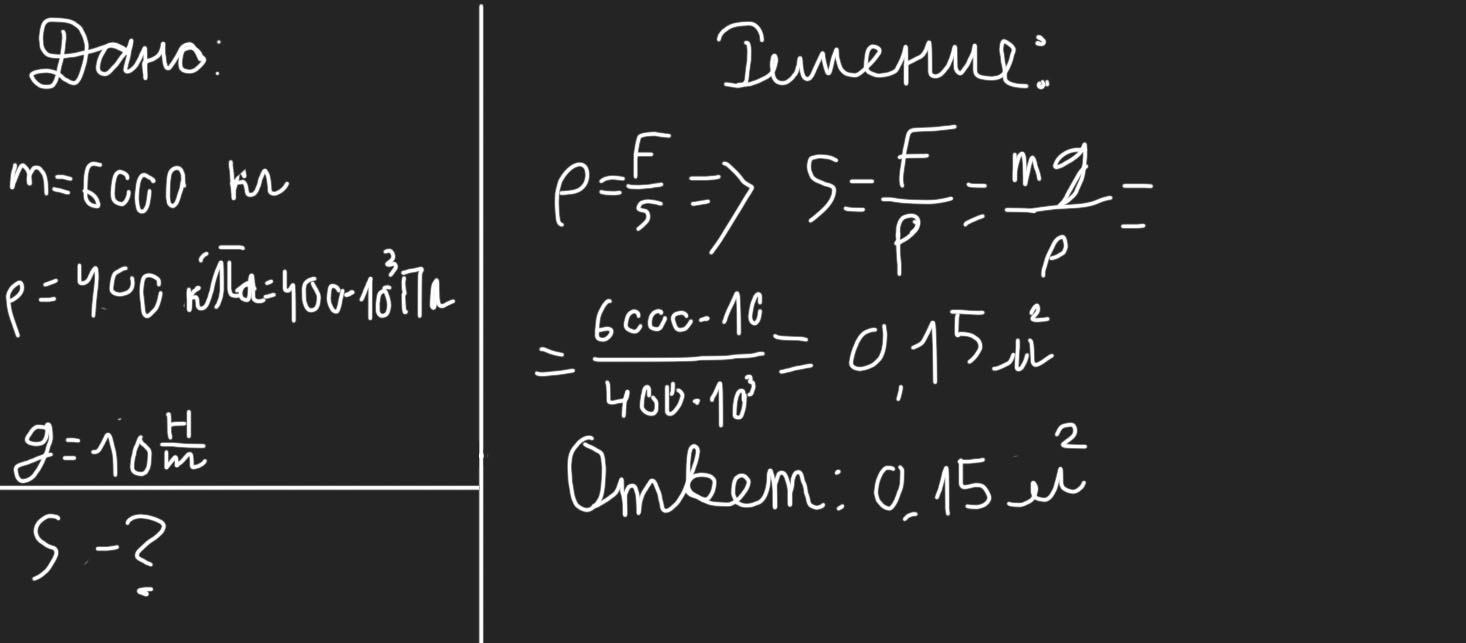 Дано:
m=6000 кг
p=400 кПа=400·10³Па
g=10 Н/m
S-?
Решение:
p=F/S => S=F/p=mg/p=
=6000·10/400·10³=0,15 м²
Ответ: 0,15 м²